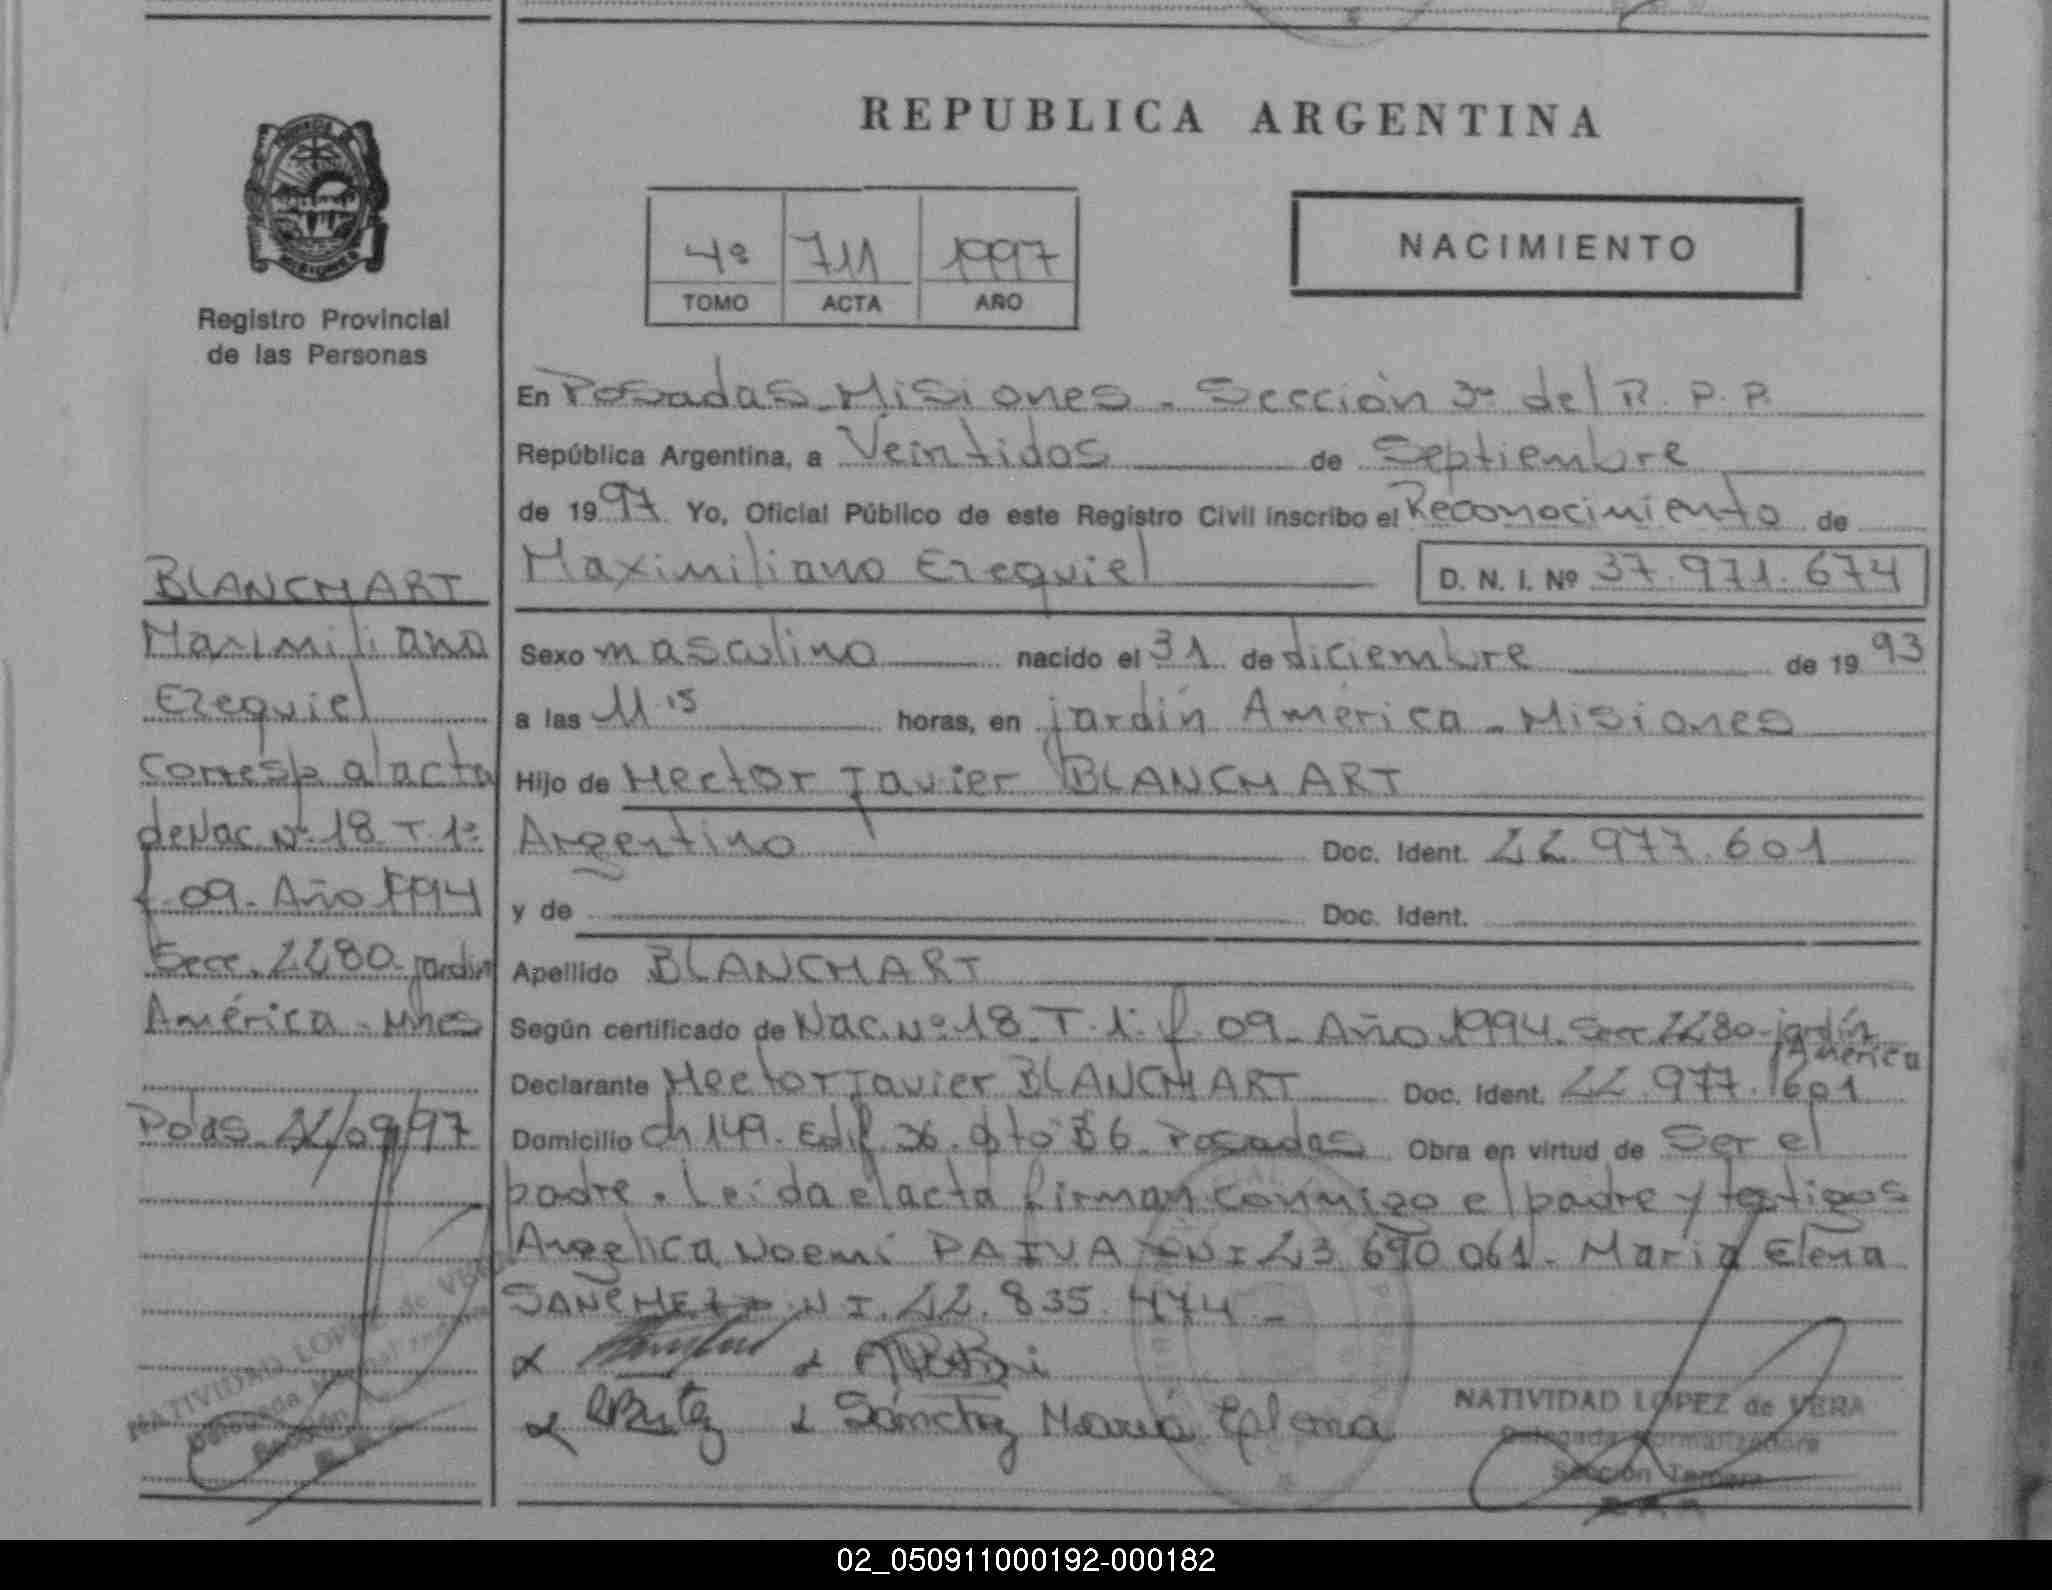 REPUBLICA ARGENTINA
4º 711 1997
TOMO ACTA AÑO
NACIMIENTO
MISIONES
Registro Provincial
de las Personas
BLANCHART
Maximiliano
Ezequiel
Corresp al acta
de Nac. Nº 18 T. 1º
f. 09. Año 1994
Secc. 2280. jardín
América - Mnes
Pdas 22/09/97
NATIVIDAD LOPEZ de VERA
En Posadas - Misiones - Sección 3º del R. P. P.
República Argentina, a Veintidos de Septiembre
de 1997 Yo, Oficial Público de este Registro Civil inscribo el Reconocimiento de
Maximiliano Ezequiel D. N. I. Nº 37.971.674
Sexo masculino nacido el 31 de diciembre de 1993
a las 11.15 horas, en jardín América - Misiones
Hijo de Hector Javier BLANCHART
Argentino Doc. Ident. 22.977.601
y de Doc. Ident.
Apellido BLANCHART
Según certificado de Nac. Nº 18 T. 1º f. 09. Año 1994. Secc 2280 - jardín
América
Declarante Hector Javier BLANCHART Doc. Ident. 22.977.601
Domicilio Ch 149. Edif. 36. dto B 6. Posadas Obra en virtud de Ser el
padre. Leída el acta firman conmigo el padre y testigos
Angelica Noemí PAIVA DNI 23.690.061. Maria Elena
SANCHEZ D.N.I. 22.835.474 -
Sánchez María Elena
NATIVIDAD LOPEZ de VERA
Delegada Normalizadora
Sección Tercera
02_050911000192-000182